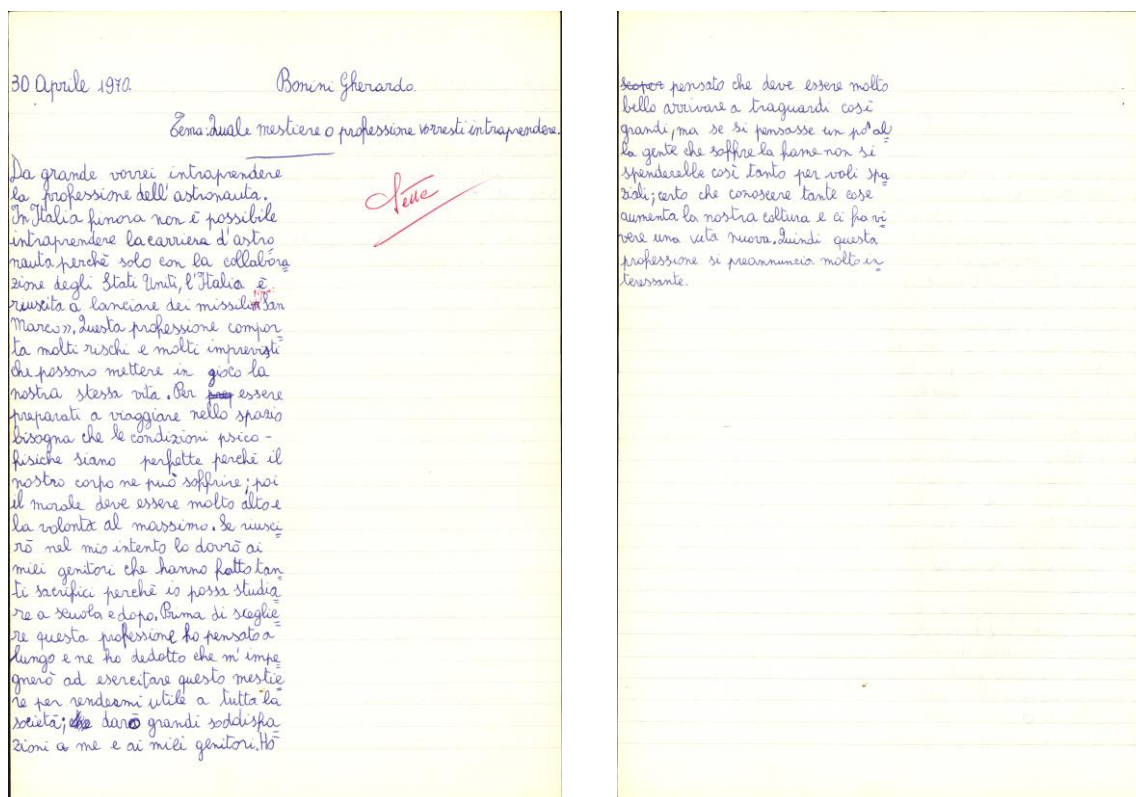 30 Aprile 1970.
Bonini Gherardo.
Tema: Quale mestiere o professione vorresti intraprendere.
Sette
Da grande vorrei intraprendere
la professione dell'astronauta.
In Italia finora non è possibile
intraprendere la carriera d'astro
nauta perchè solo con la collabora
zione degli Stati Uniti, l'Italia è
riuscita a lanciare dei missili «San
Marco». Questa professione compor
ta molti rischi e molti imprevisti
che possono mettere in gioco la
nostra stessa vita. Per essere
preparati a viaggiare nello spazio
bisogna che le condizioni psico-
fisiche siano perfette perchè il
nostro corpo ne può soffrire; poi
il morale deve essere molto alto e
la volontà al massimo. Se riusci
rò nel mio intento lo dovrò ai
miei genitori che hanno fatto tan
ti sacrifici perchè io possa studia
re a scuola e dopo. Prima di sceglie
re questa professione ho pensato a
lungo e ne ho dedotto che m'impe
gnerò ad esercitare questo mestie
re per rendermi utile a tutta la
società; darò grandi soddisfa
zioni a me e ai miei genitori. Hò
pensato che deve essere molto
bello arrivare a traguardi così
grandi, ma se si pensasse un po' al
la gente che soffre la fame non si
spenderebbe così tanto per voli spa
ziali; certo che conoscere tante cose
aumenta la nostra coltura e ci fa vi
vere una vita nuova. Quindi questa
professione si preannuncia molto in
teressante.